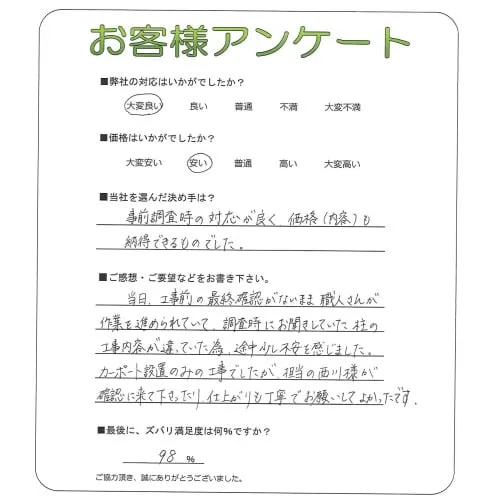 お客様アンケート
■弊社の対応はいかがでしたか？
大変良い 良い 普通 不満 大変不満
■価格はいかがでしたか？
大変安い 安い 普通 高い 大変高い
■当社を選んだ決め手は？
事前調査時の対応が良く、価格(内容)も
納得できるものでした。
■ご感想・ご要望などをお書き下さい。
当日、工事前の最終確認がないまま職人さんが
作業を進められていて、調査時にお聞きしていた柱の
工事内容が違っていた為、途中少し不安を感じました。
カーポート設置のみの工事でしたが、担当の西川様が
確認に来て下さったり、仕上がりも丁寧でお願いしてよかったです。
■最後に、ズバリ満足度は何%ですか？
98 %
ご協力頂き、誠にありがとうございました。